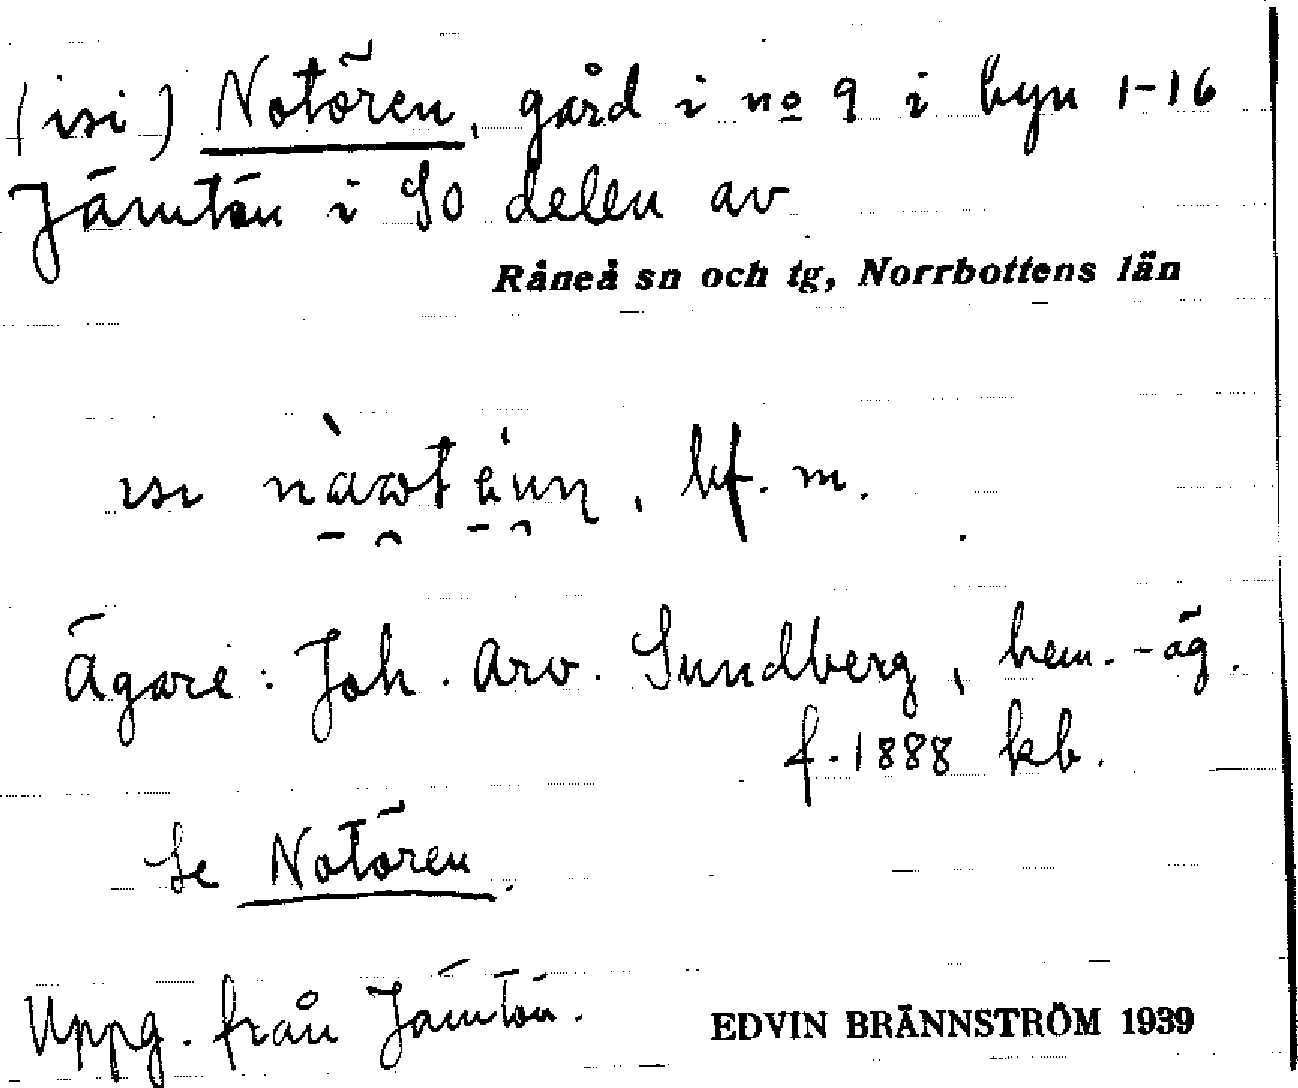 (isi) Notören, gård i no 9 i byn 1-16
Jämtön i SO delen av
Råneå sn och tg, Norrbottens län
isi
, bf. m.
Ägare: Joh. Arv. Sundberg, hem.-äg.
f. 1888 kb.
Se Notören.
Uppg. från Jämtön.
EDVIN BRÄNNSTRÖM 1939